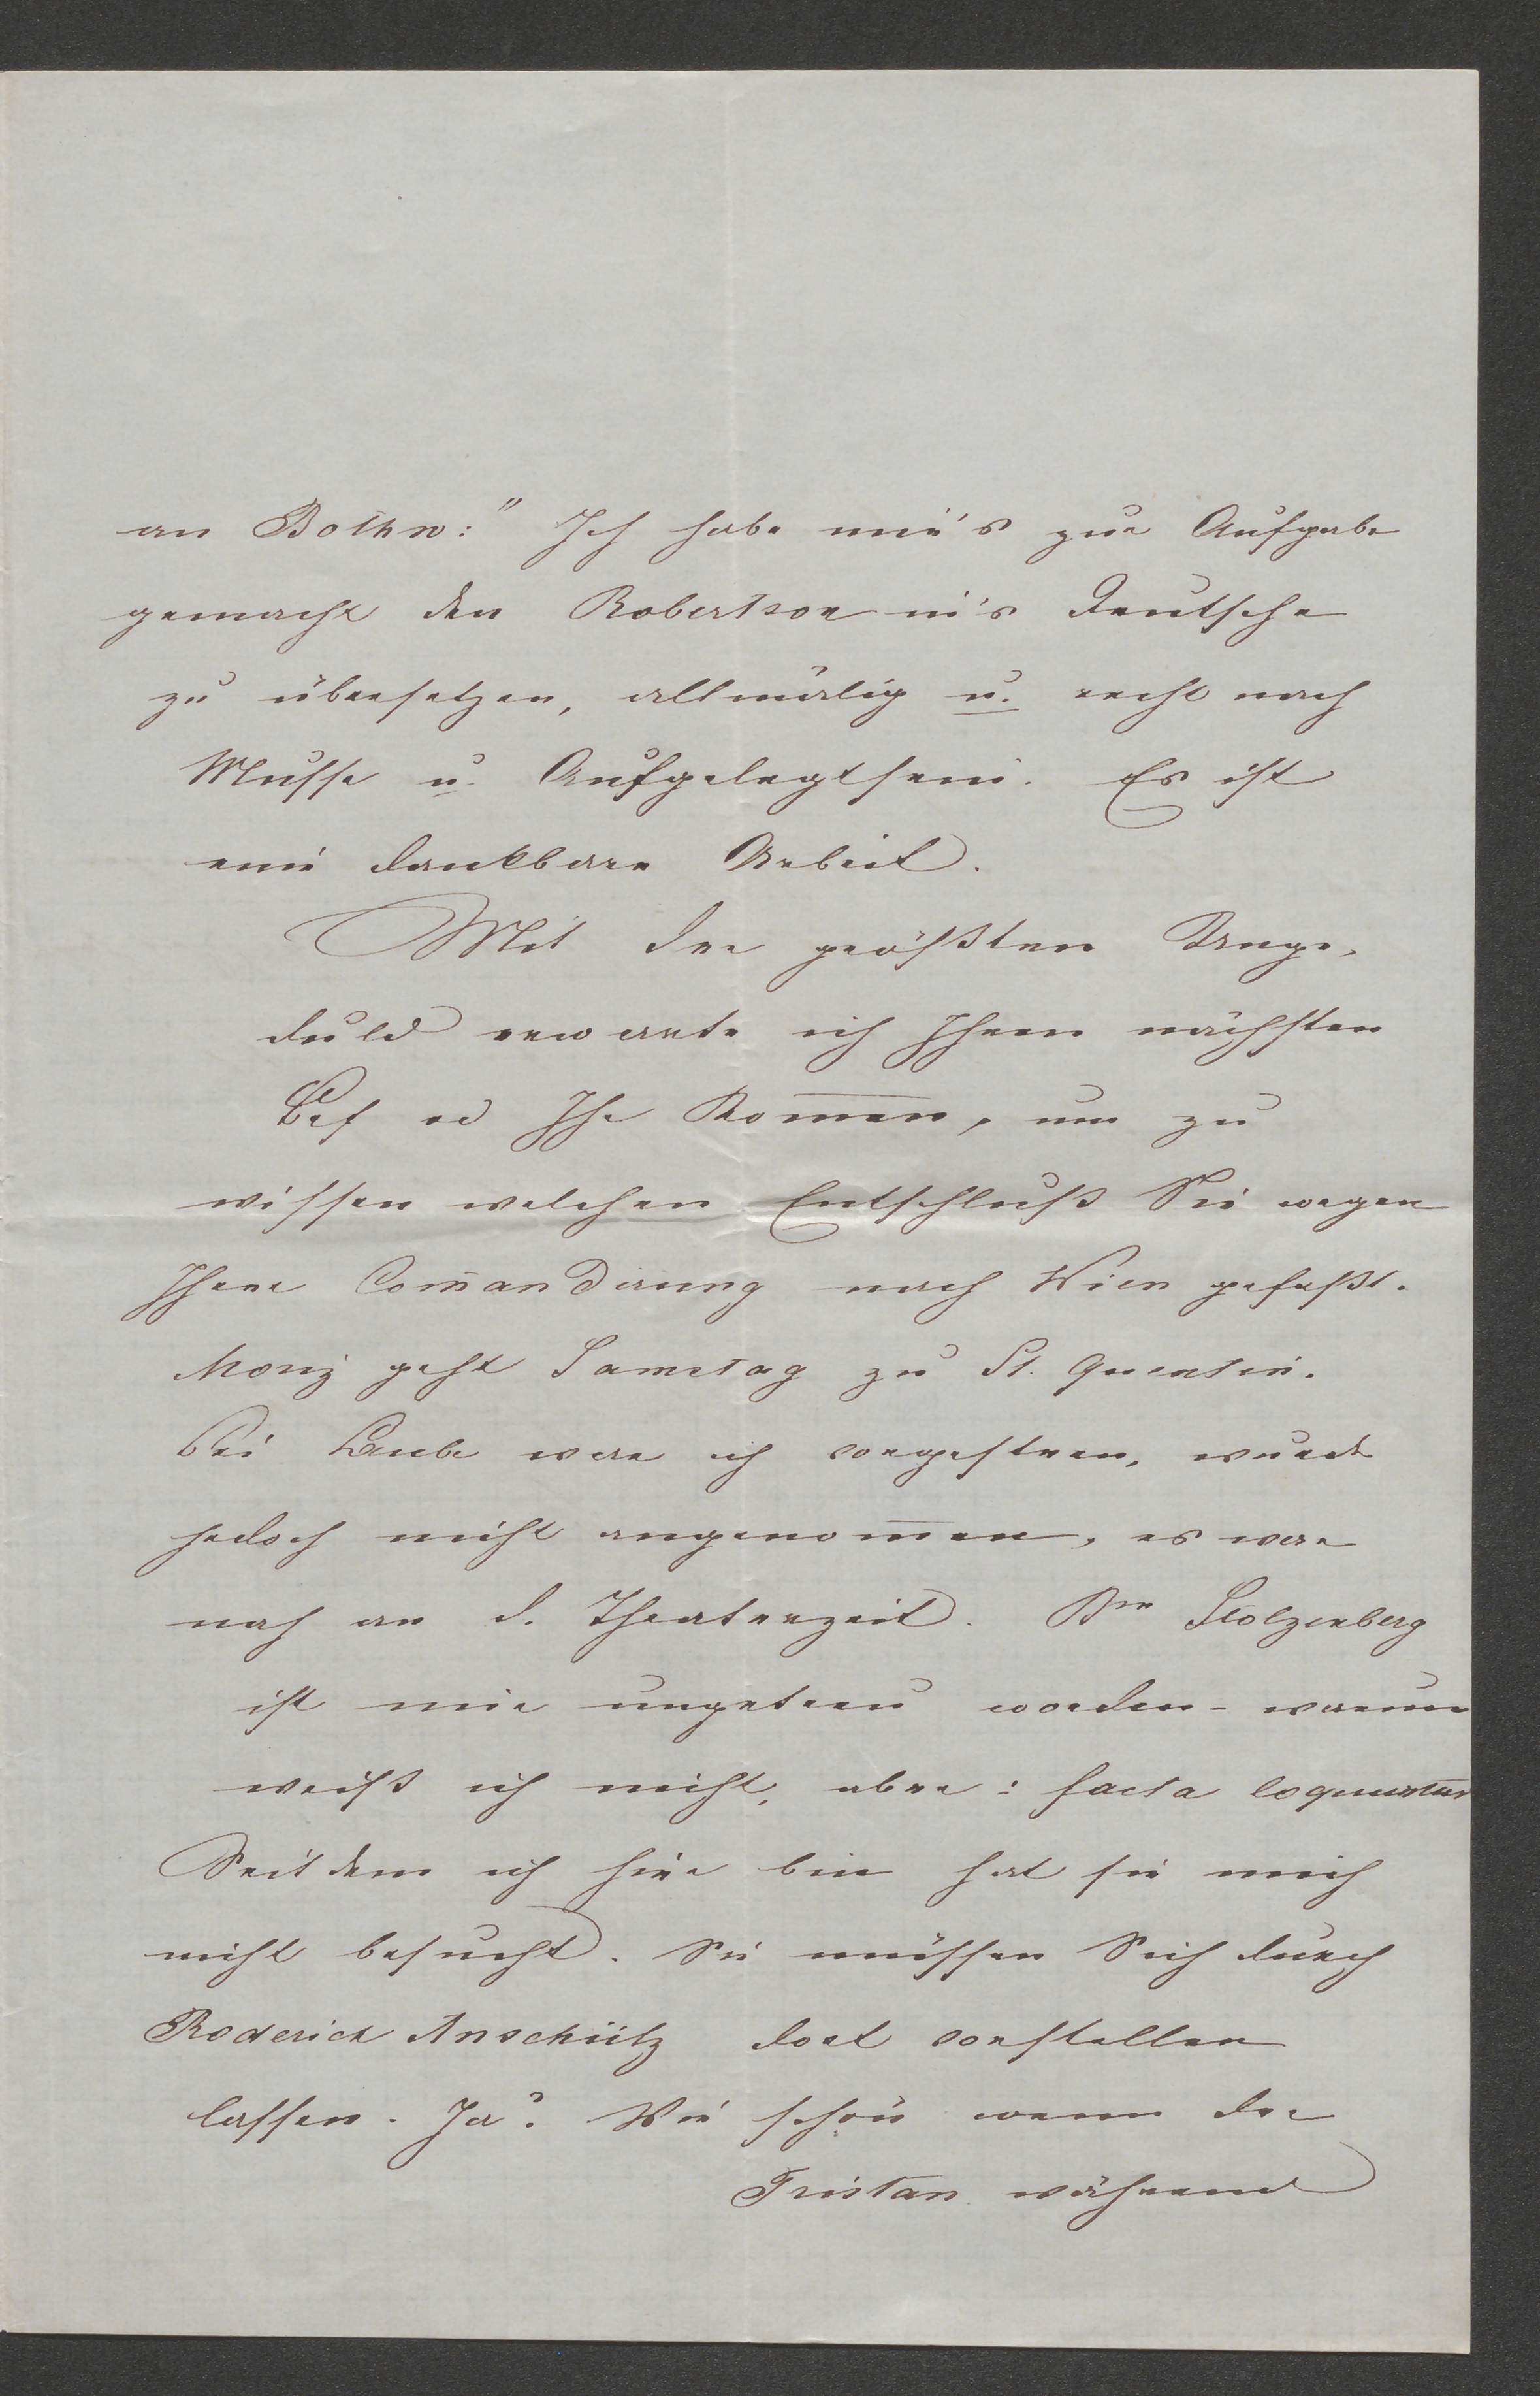 an Bothw:" Ich habe mir's zur Aufgabe
gemacht den Robertson in's Deutsche
zu übersetzen, allmälig u. recht nach
Musse u. Aufgelegtsein. Es ist
eine dankbare Arbeit.
Mit der größten Unge-
duld erwarte ich Ihren nächsten
Brf od Ihr Kom̅en, um zu
wissen welchen Entschluß Sie wegen
Ihrer Com̅andirung nach Wien gefaßt.
Moriz geht Samstag zu St. Quentin.
Bei Laube war ich vorgestern, wurde
jedoch nicht angenom̅en, es war
nah an d. Theaterzeit. Bin Stolzenberg
ist mir ungetreu worden - warum
weiß ich nicht, aber: facta loquuntur
Seitdem ich hier bin hat sie mich
nicht besucht. Sie müssen Sich durch
Roderich Anschütz dort vorstellen
lassen. Ja? Wie schön wenn der
Tristan während